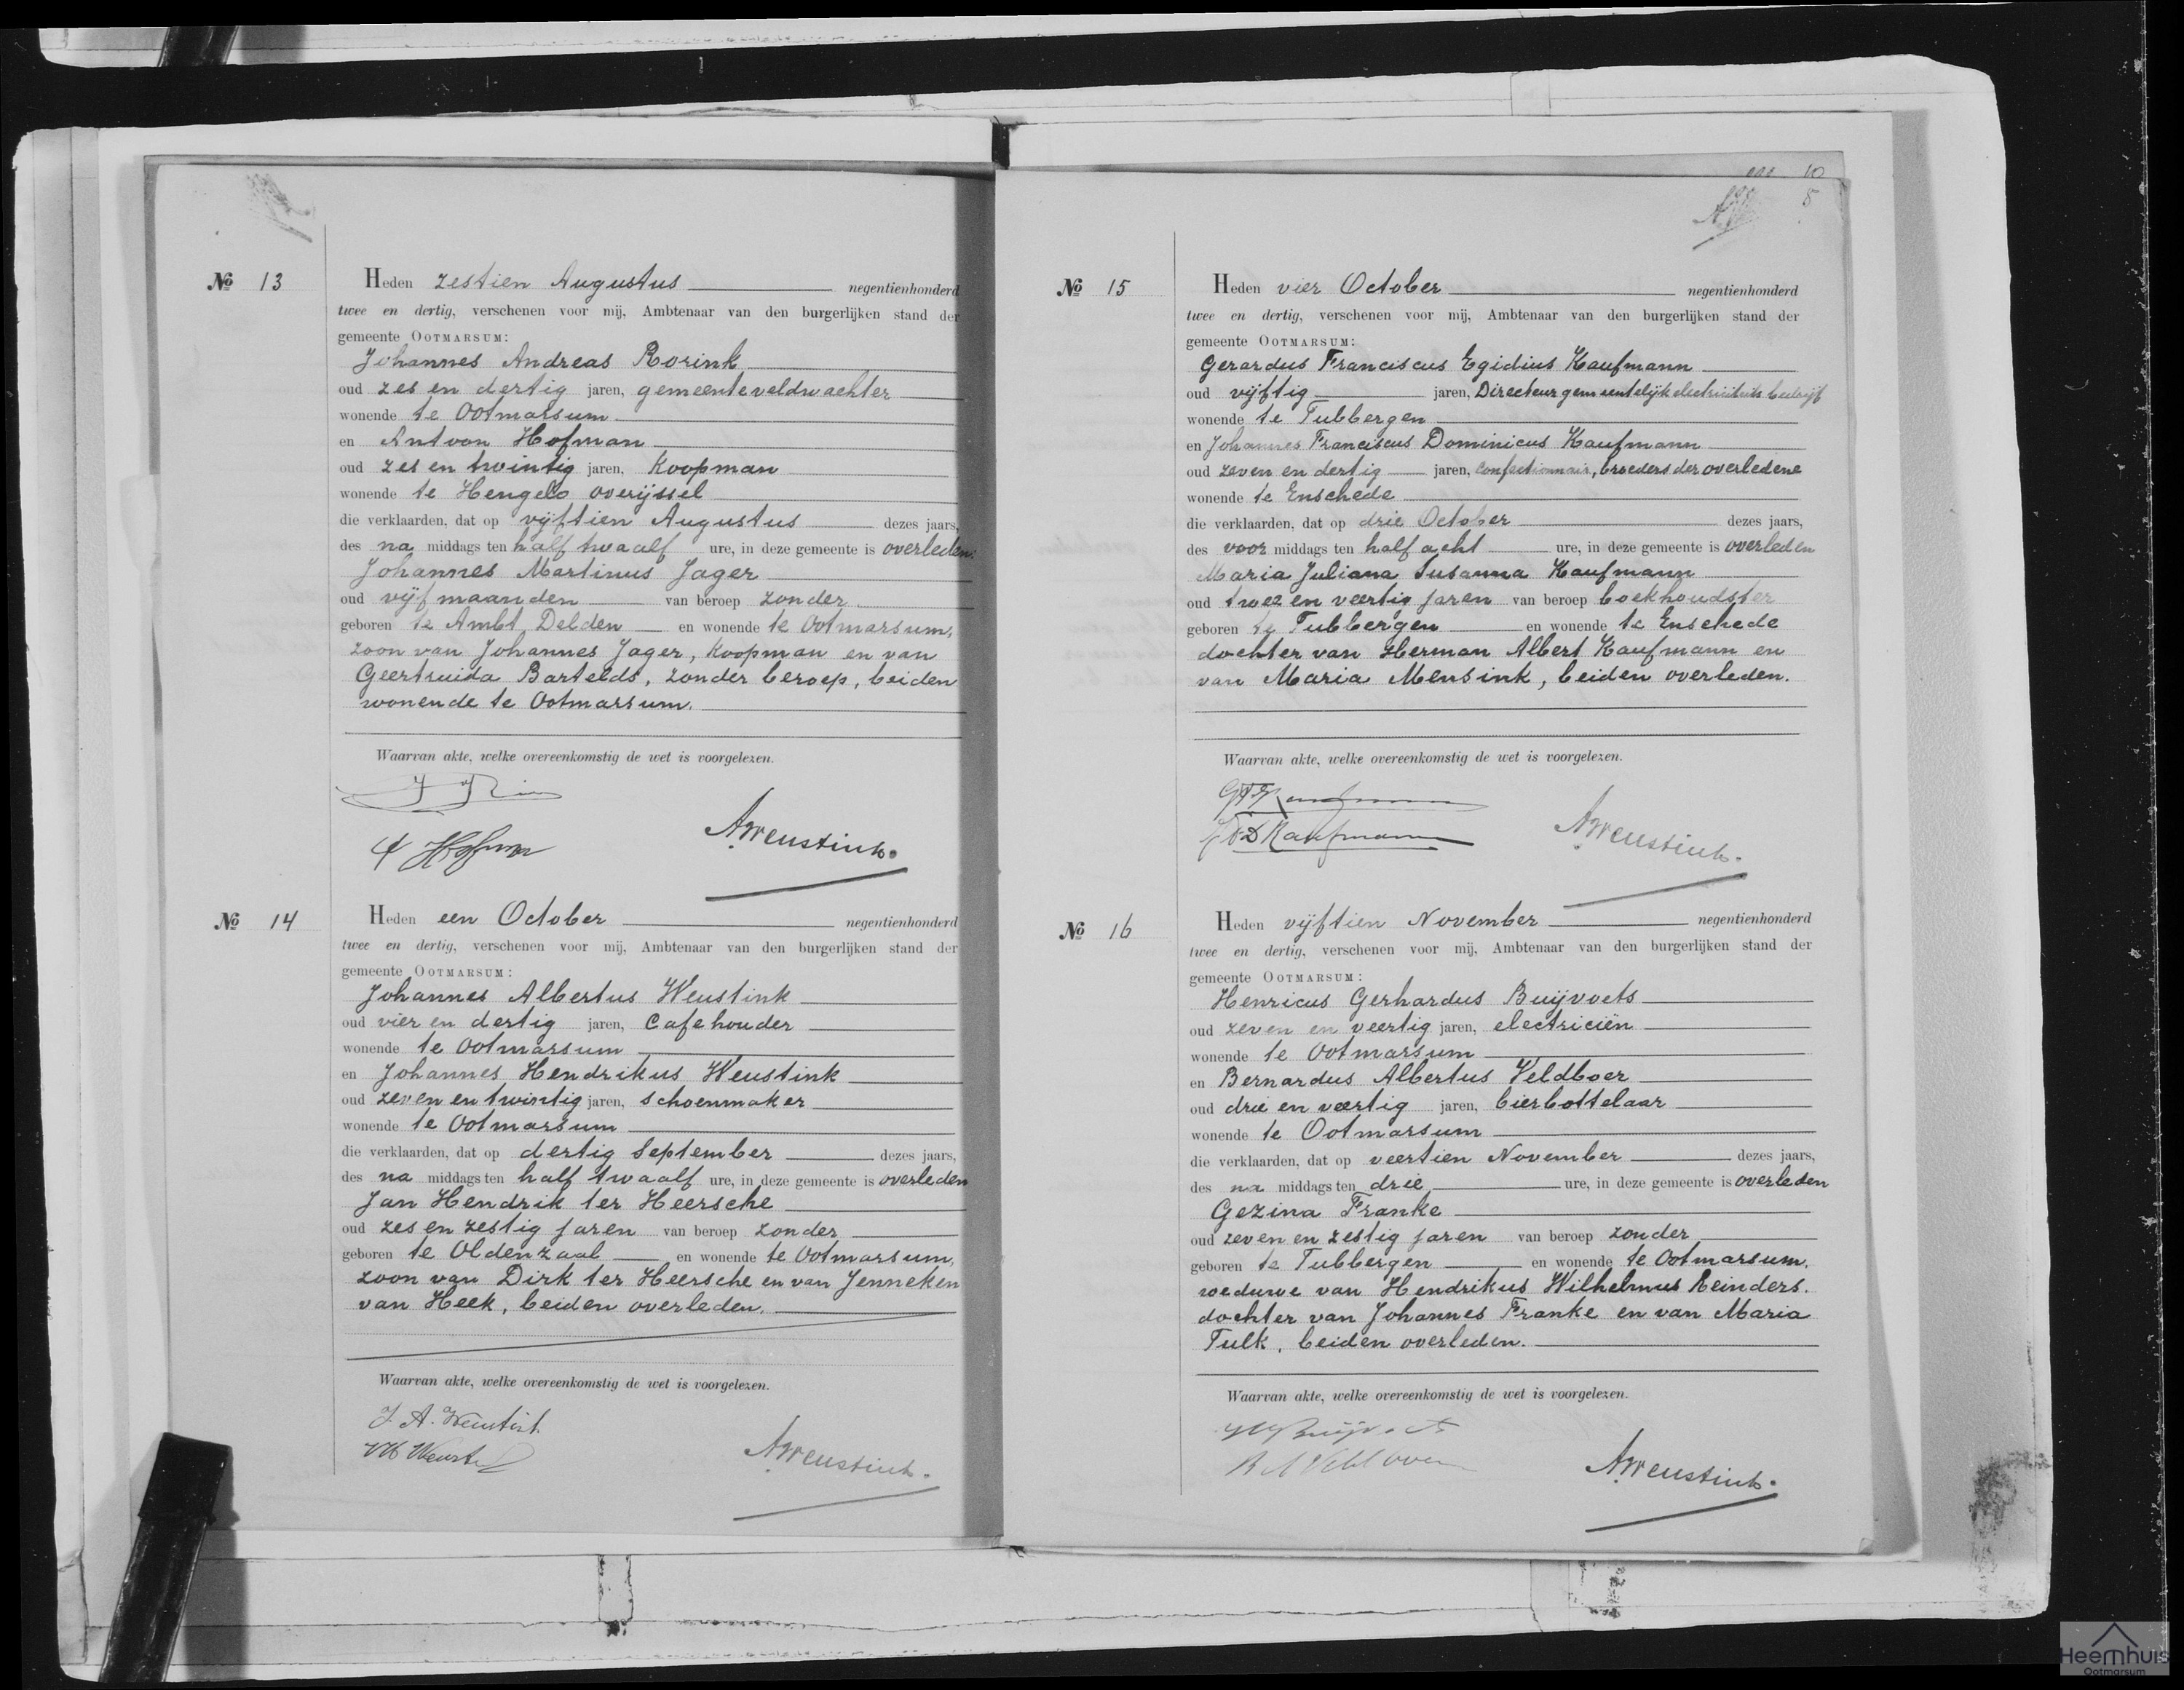 No 13
Heden zestien Augustus negentienhonderd
twee en dertig, verschenen voor mij, Ambtenaar van den burgerlijken stand der
gemeente OOTMARSUM:
Johannes Andreas Rorink
oud zes en dertig jaren, gemeenteveldwachter
wonende te Ootmarsum
en Antoon Hofman
oud zes en twintig jaren, Koopman
wonende te Hengelo overijssel
die verklaarden, dat op vijftien Augustus dezes jaars,
des na middags ten half twaalf ure, in deze gemeente is overleden:
Johannes Martinus Jager
oud vijf maanden van beroep zonder
geboren te Ambt Delden en wonende te Ootmarsum,
zoon van Johannes Jager, Koopman en van
Geertruida Bartelds, zonder beroep, beiden
wonende te Ootmarsum.
Waarvan akte, welke overeenkomstig de wet is voorgelezen.
AWeustink.
No 14
Heden een October negentienhonderd
twee en dertig, verschenen voor mij, Ambtenaar van den burgerlijken stand der
gemeente OOTMARSUM:
Johannes Albertus Weustink
oud vier en dertig jaren, Cafehouder
wonende te Ootmarsum
en Johannes Hendrikus Weustink
oud zeven en twintig jaren, schoenmaker
wonende te Ootmarsum
die verklaarden, dat op dertig September dezes jaars,
des na middags ten half twaalf ure, in deze gemeente is overleden
Jan Hendrik ter Heersche
oud zes en zestig jaren van beroep zonder
geboren te Oldenzaal en wonende te Ootmarsum,
zoon van Dirk ter Heersche en van Jenneken
van Heek, beiden overleden.
Waarvan akte, welke overeenkomstig de wet is voorgelezen.
J. A. Weustink
AWeustink.
10
8
No 15
Heden vier October negentienhonderd
twee en dertig, verschenen voor mij, Ambtenaar van den burgerlijken stand der
gemeente OOTMARSUM:
Gerardus Franciscus Egidius Kaufmann
oud vijftig jaren, Directeur gemeentelijk electriciteits bedrijf
wonende te Tubbergen
en Johannes Franciscus Dominicus Kaufmann
oud zeven en dertig jaren, confectionnair, broeders der overledene
wonende te Enschede
die verklaarden, dat op drie October dezes jaars,
des voor middags ten half acht ure, in deze gemeente is overleden
Maria Juliana Susanna Kaufmann
oud twee en veertig jaren van beroep boekhoudster
geboren te Tubbergen en wonende te Enschede
dochter van Herman Albert Kaufmann en
van Maria Mensink, beiden overleden.
Waarvan akte, welke overeenkomstig de wet is voorgelezen.
JFD Kaufmann
AWeustink.
No 16
Heden vijftien November negentienhonderd
twee en dertig, verschenen voor mij, Ambtenaar van den burgerlijken stand der
gemeente OOTMARSUM:
Henricus Gerhardus Buijvoets
oud zeven en veertig jaren, electriciën
wonende te Ootmarsum
en Bernardus Albertus Veldboer
oud drie en veertig jaren, bierbottelaar
wonende te Ootmarsum
die verklaarden, dat op veertien November dezes jaars,
des na middags ten drie ure, in deze gemeente is overleden
Gezina Franke
oud zeven en zestig jaren van beroep zonder
geboren te Tubbergen en wonende te Ootmarsum,
weduwe van Hendrikus Wilhelmus Reinders.
dochter van Johannes Franke en van Maria
Tulk, beiden overleden.
Waarvan akte, welke overeenkomstig de wet is voorgelezen.
B A Veldboer
AWeustink.
Heemhuis
Ootmarsum